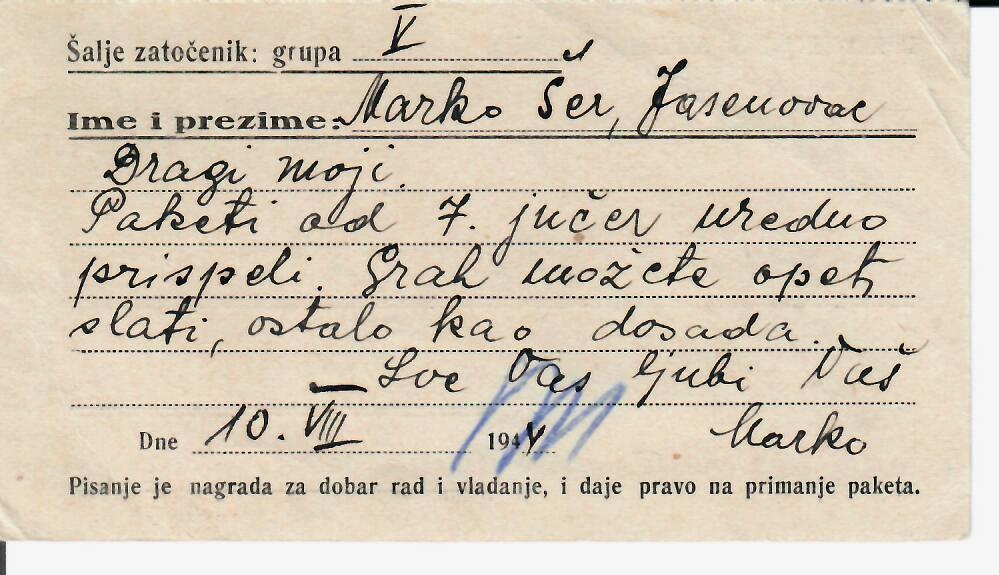 Šalje zatočenik: grupa V
Ime i prezime: Marko Šer, Jasenovac
Dragi moji.
Paketi od 7. jučer uredno
prispeli. Grah možete opet
slati, ostalo kao dosada.
Sve Vas ljubi Vaš
Dne 10. VIII 1944 Marko
Pisanje je nagrada za dobar rad i vladanje, i daje pravo na primanje paketa.